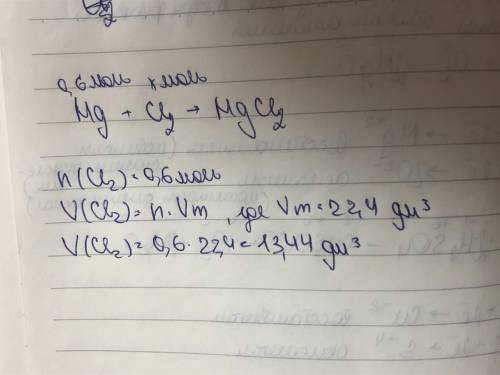 0,6 моль x моль
Mg + Cl₂ → MgCl₂
n(Cl₂) = 0,6 моль
V(Cl₂) = n · Vm , где Vm = 22,4 дм³
V(Cl₂) = 0,6 · 22,4 = 13,44 дм³